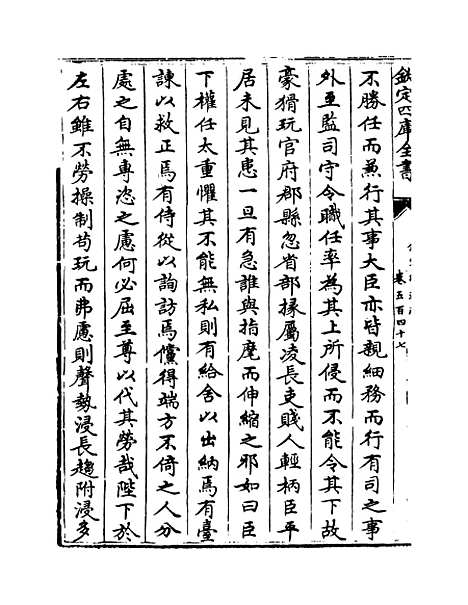 欽定四庫全書
卷五百四十七
不勝任而兼行其事大臣亦皆親細務而行有司之事
外至監司守令職任率為其上所侵而不能令其下故
豪猾玩官府郡縣忽省部掾屬凌長吏賤人輕柄臣平
居未見其患一旦有急誰與指麾而伸縮之邪如曰臣
下權任太重懼其不能無私則有給舍以出納焉有臺
諫以救正焉有侍從以詢訪焉儻得端方不倚之人分
處之自無專恣之慮何必屈至尊以代其勞哉陛下於
左右雖不勞操制苟玩而弗慮則聲勢浸長趨附浸多